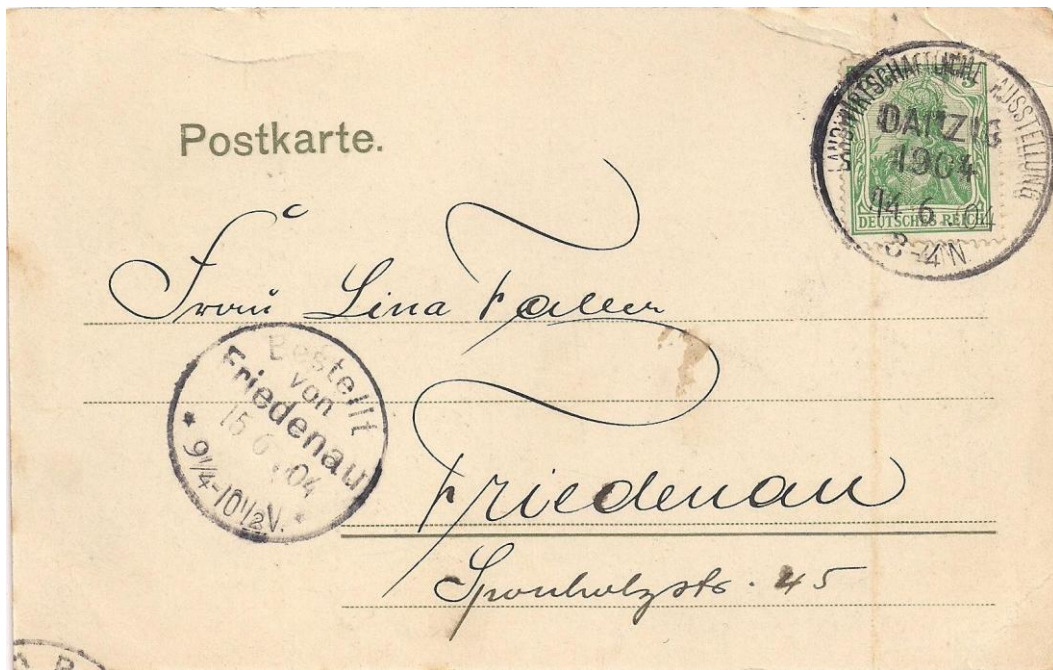 Postkarte.
LANDWIRTSCHAFTLICHE AUSSTELLUNG
DANZIG
1904
14 6 04
3-4N
DEUTSCHES REICH
Frau Lina Faller
Bestellt
von
Friedenau
15 6 04
* 9¼-10½V. *
Friedenau
Sponholzstr. 45